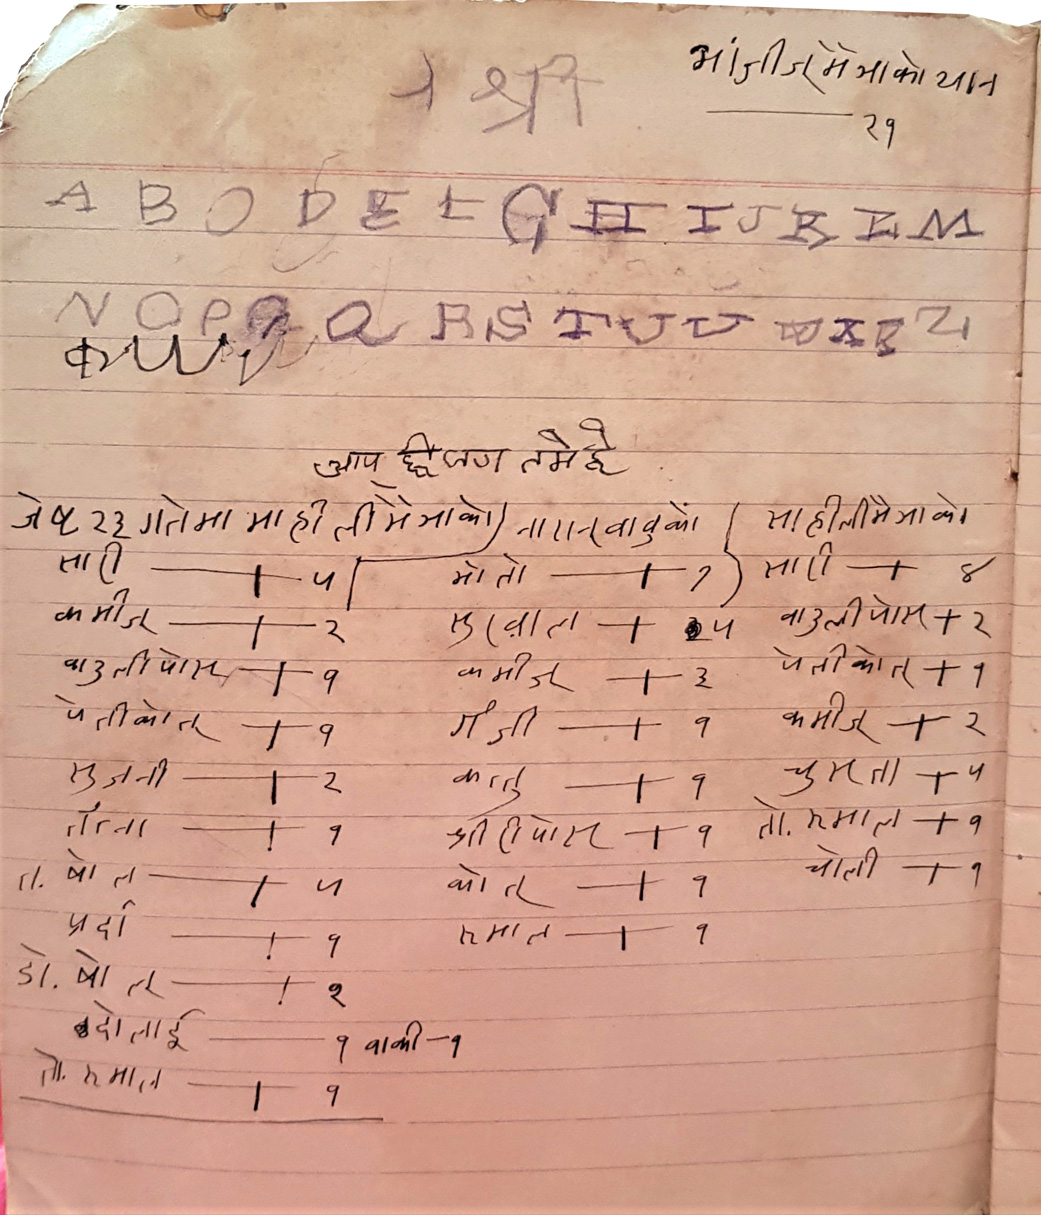 १ श्री
मांजीज्मैञाको थान
२१
A B O D E L G H I J K L M
N O P Q Q R S T U U W X Z
क
आप जग तमै है
जेष्ट २३ गतेमा माहीलीमैञाको नारानवावुको साहीलीमैञाको
सारी ५ मोतो सारी ४
कमीज २ सुरवाल ५ वाउलीपोस २
वाउलीपोस १ कमीज ३ पेतीकोत १
पेतीकोत १ गंजी १ कमीज २
सुजनी २ १ ५
तंन्ना १ १ तो. रुमाल १
त. षोल ५ कोत १ चोली १
पर्दा १ रुमाल १
डो. षोल १
दोलाई १ वाकी १
तो. रुमाल १